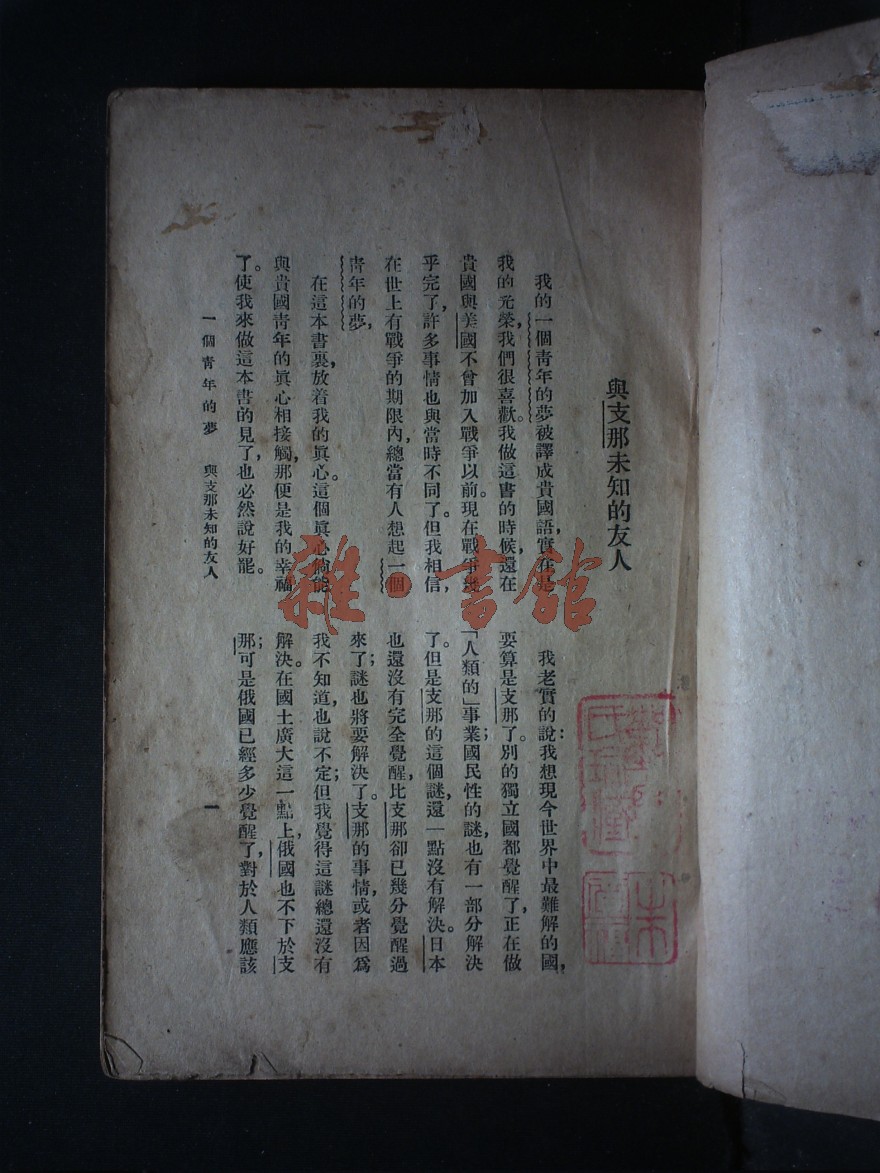 與支那未知的友人
我的一個青年的夢被譯成貴國語，實在是
我的光榮，我們很喜歡。我做這書的時候，還在
貴國與美國不曾加入戰爭以前。現在戰爭幾
乎完了，許多事情也與當時不同了。但我相信，
在世上有戰爭的期限內，總當有人想起一個
青年的夢，
在這本書裏，放着我的眞心。這個眞心倘能
與貴國青年的眞心相接觸，那便是我的幸福
了。使我來做這本書的見了，也必然說好罷。
我老實的說：我想現今世界中最難解的國，
要算是支那了。別的獨立國都覺醒了，正在做
「人類的」事業；國民性的謎，也有一部分解決
了。但是支那的這個謎，還一點沒有解決。日本
也還沒有完全覺醒，比支那卻已幾分覺醒過
來了；謎也將要解決了。支那的事情，或者因爲
我不知道，也說不定；但我覺得這謎總還沒有
解決。在國土廣大這一點上，俄國也不下於支
那；可是俄國已經多少覺醒了，對於人類應該
一個青年的夢　與支那未知的友人
一
雜·書館